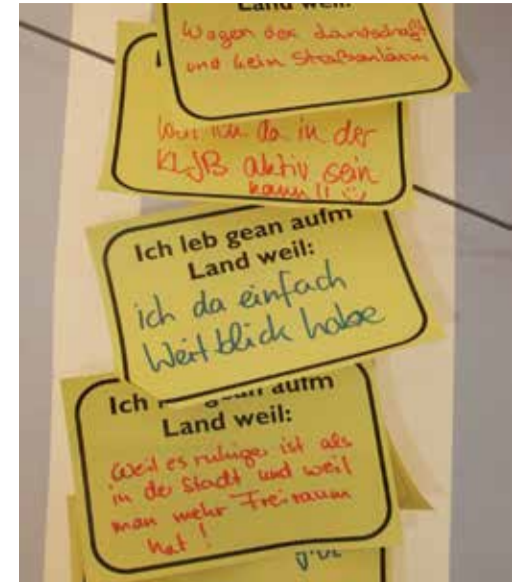 Land weil:
Wegen der Landschaft
und kein Straßenlärm
weil ich da in der
KLJB aktiv sein
kann!!
Ich leb gean aufm
Land weil:
ich da einfach
Weitblick habe
Ich gean aufm
Land weil:
Weil es ruhiger ist als
in der Stadt und weil
man mehr Freiraum
hat!